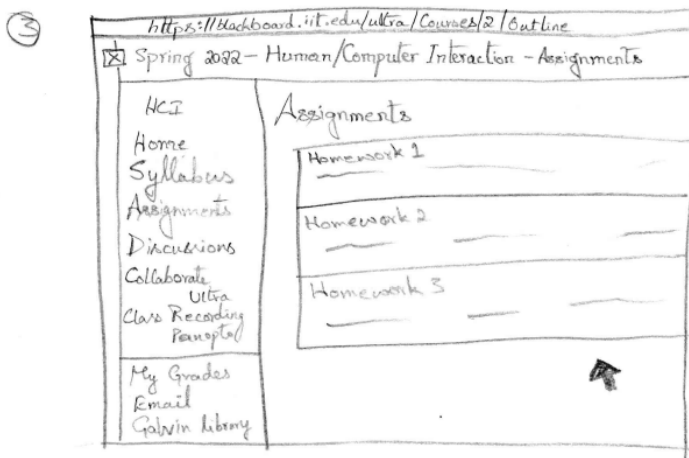 3
https://blackboard.iit.edu/ultra/Courses/2/Outline
Spring 2022 - Human/Computer Interaction - Assignments
HCI
Home
Syllabus
Assignments
Discussions
Collaborate
Ultra
Class Recording
Panopto
My Grades
Email
Galvin library
Assignments
Homework 1
Homework 2
Homework 3